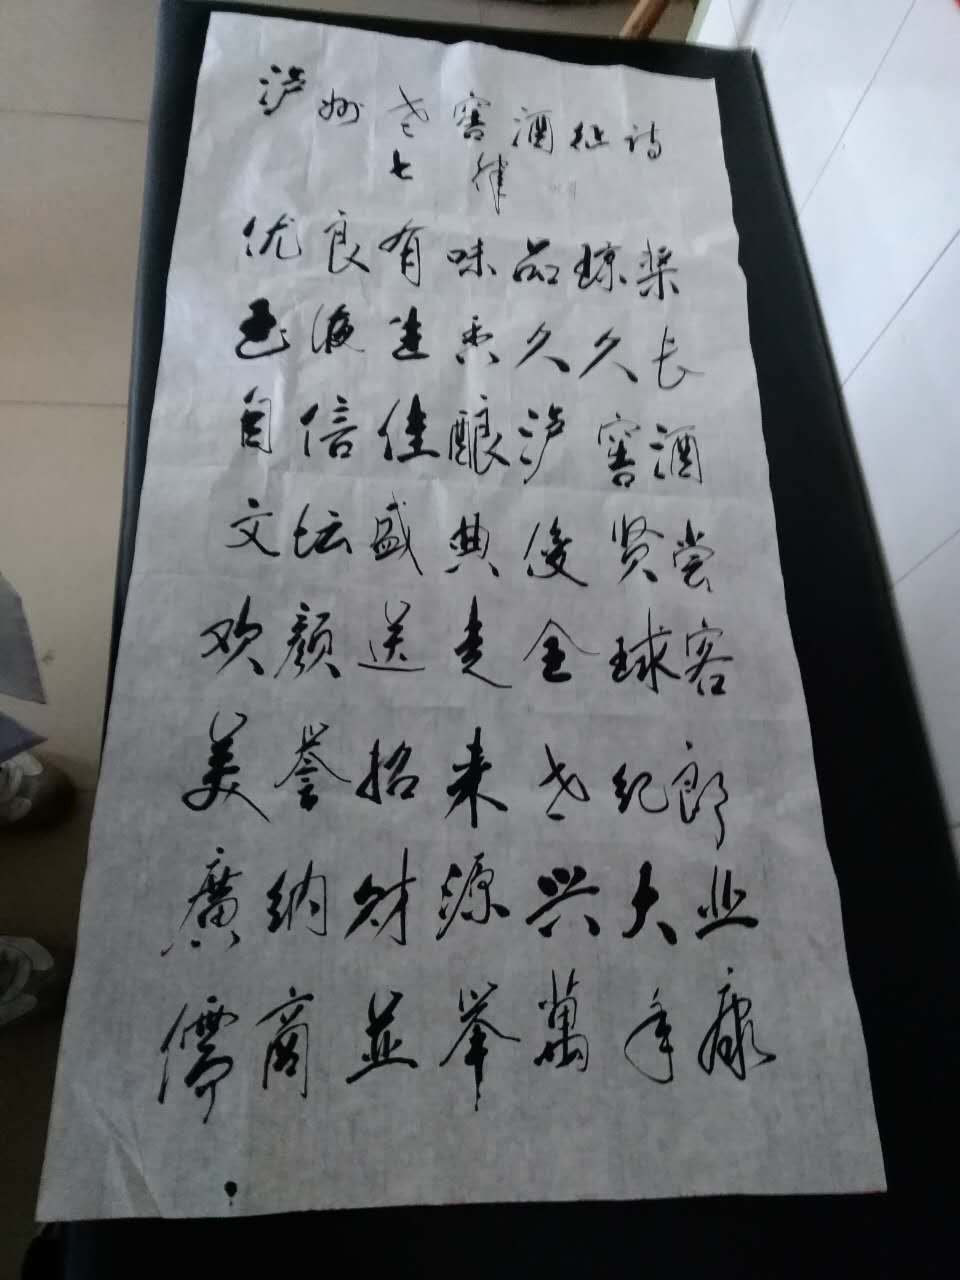 泸州老窖酒征诗
七律
优良有味品琼浆
玉液生香久久长
自信佳酿泸窖酒
文坛盛典俊贤尝
欢颜送走全球客
美誉招来世纪郎
廣纳财源兴大业
儒商並举萬年康